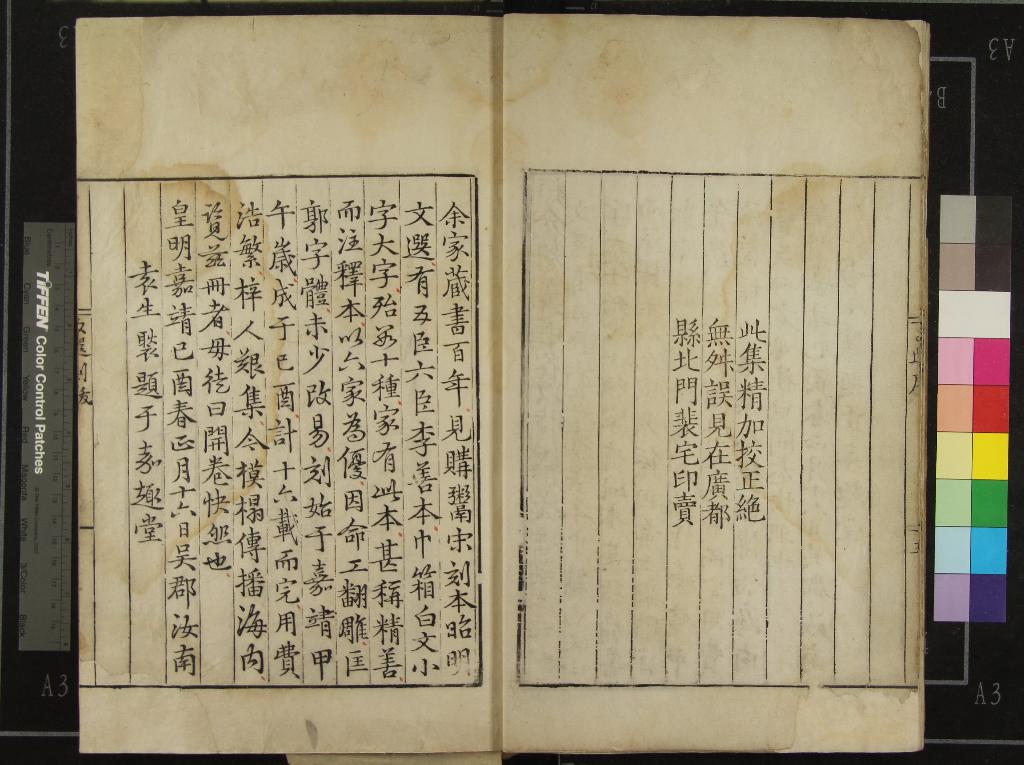 此集精加挍正絶
無舛誤見在廣都
縣北門裴宅印賣
余家藏書百年見購鬻宋刻本昭明
文選有五臣六臣李善本巾箱白文小
字大字殆數十種家有此本甚稱精善
而注釋本以六家為優因命工翻雕匡
郭字體未少改易刻始于嘉靖甲
午歲成于己酉計十六載而完用費
浩繁梓人艱集今模搨傳播海內
覽茲冊者毋徒曰開卷快然也
皇明嘉靖己酉春正月十六日吳郡汝南
袁生褧題于嘉趣堂
TIFFEN Color Control Patches
Blue
Cyan
Green
Yellow
Red
Magenta
White
3/Color
Black
A3
A3
A3
A3